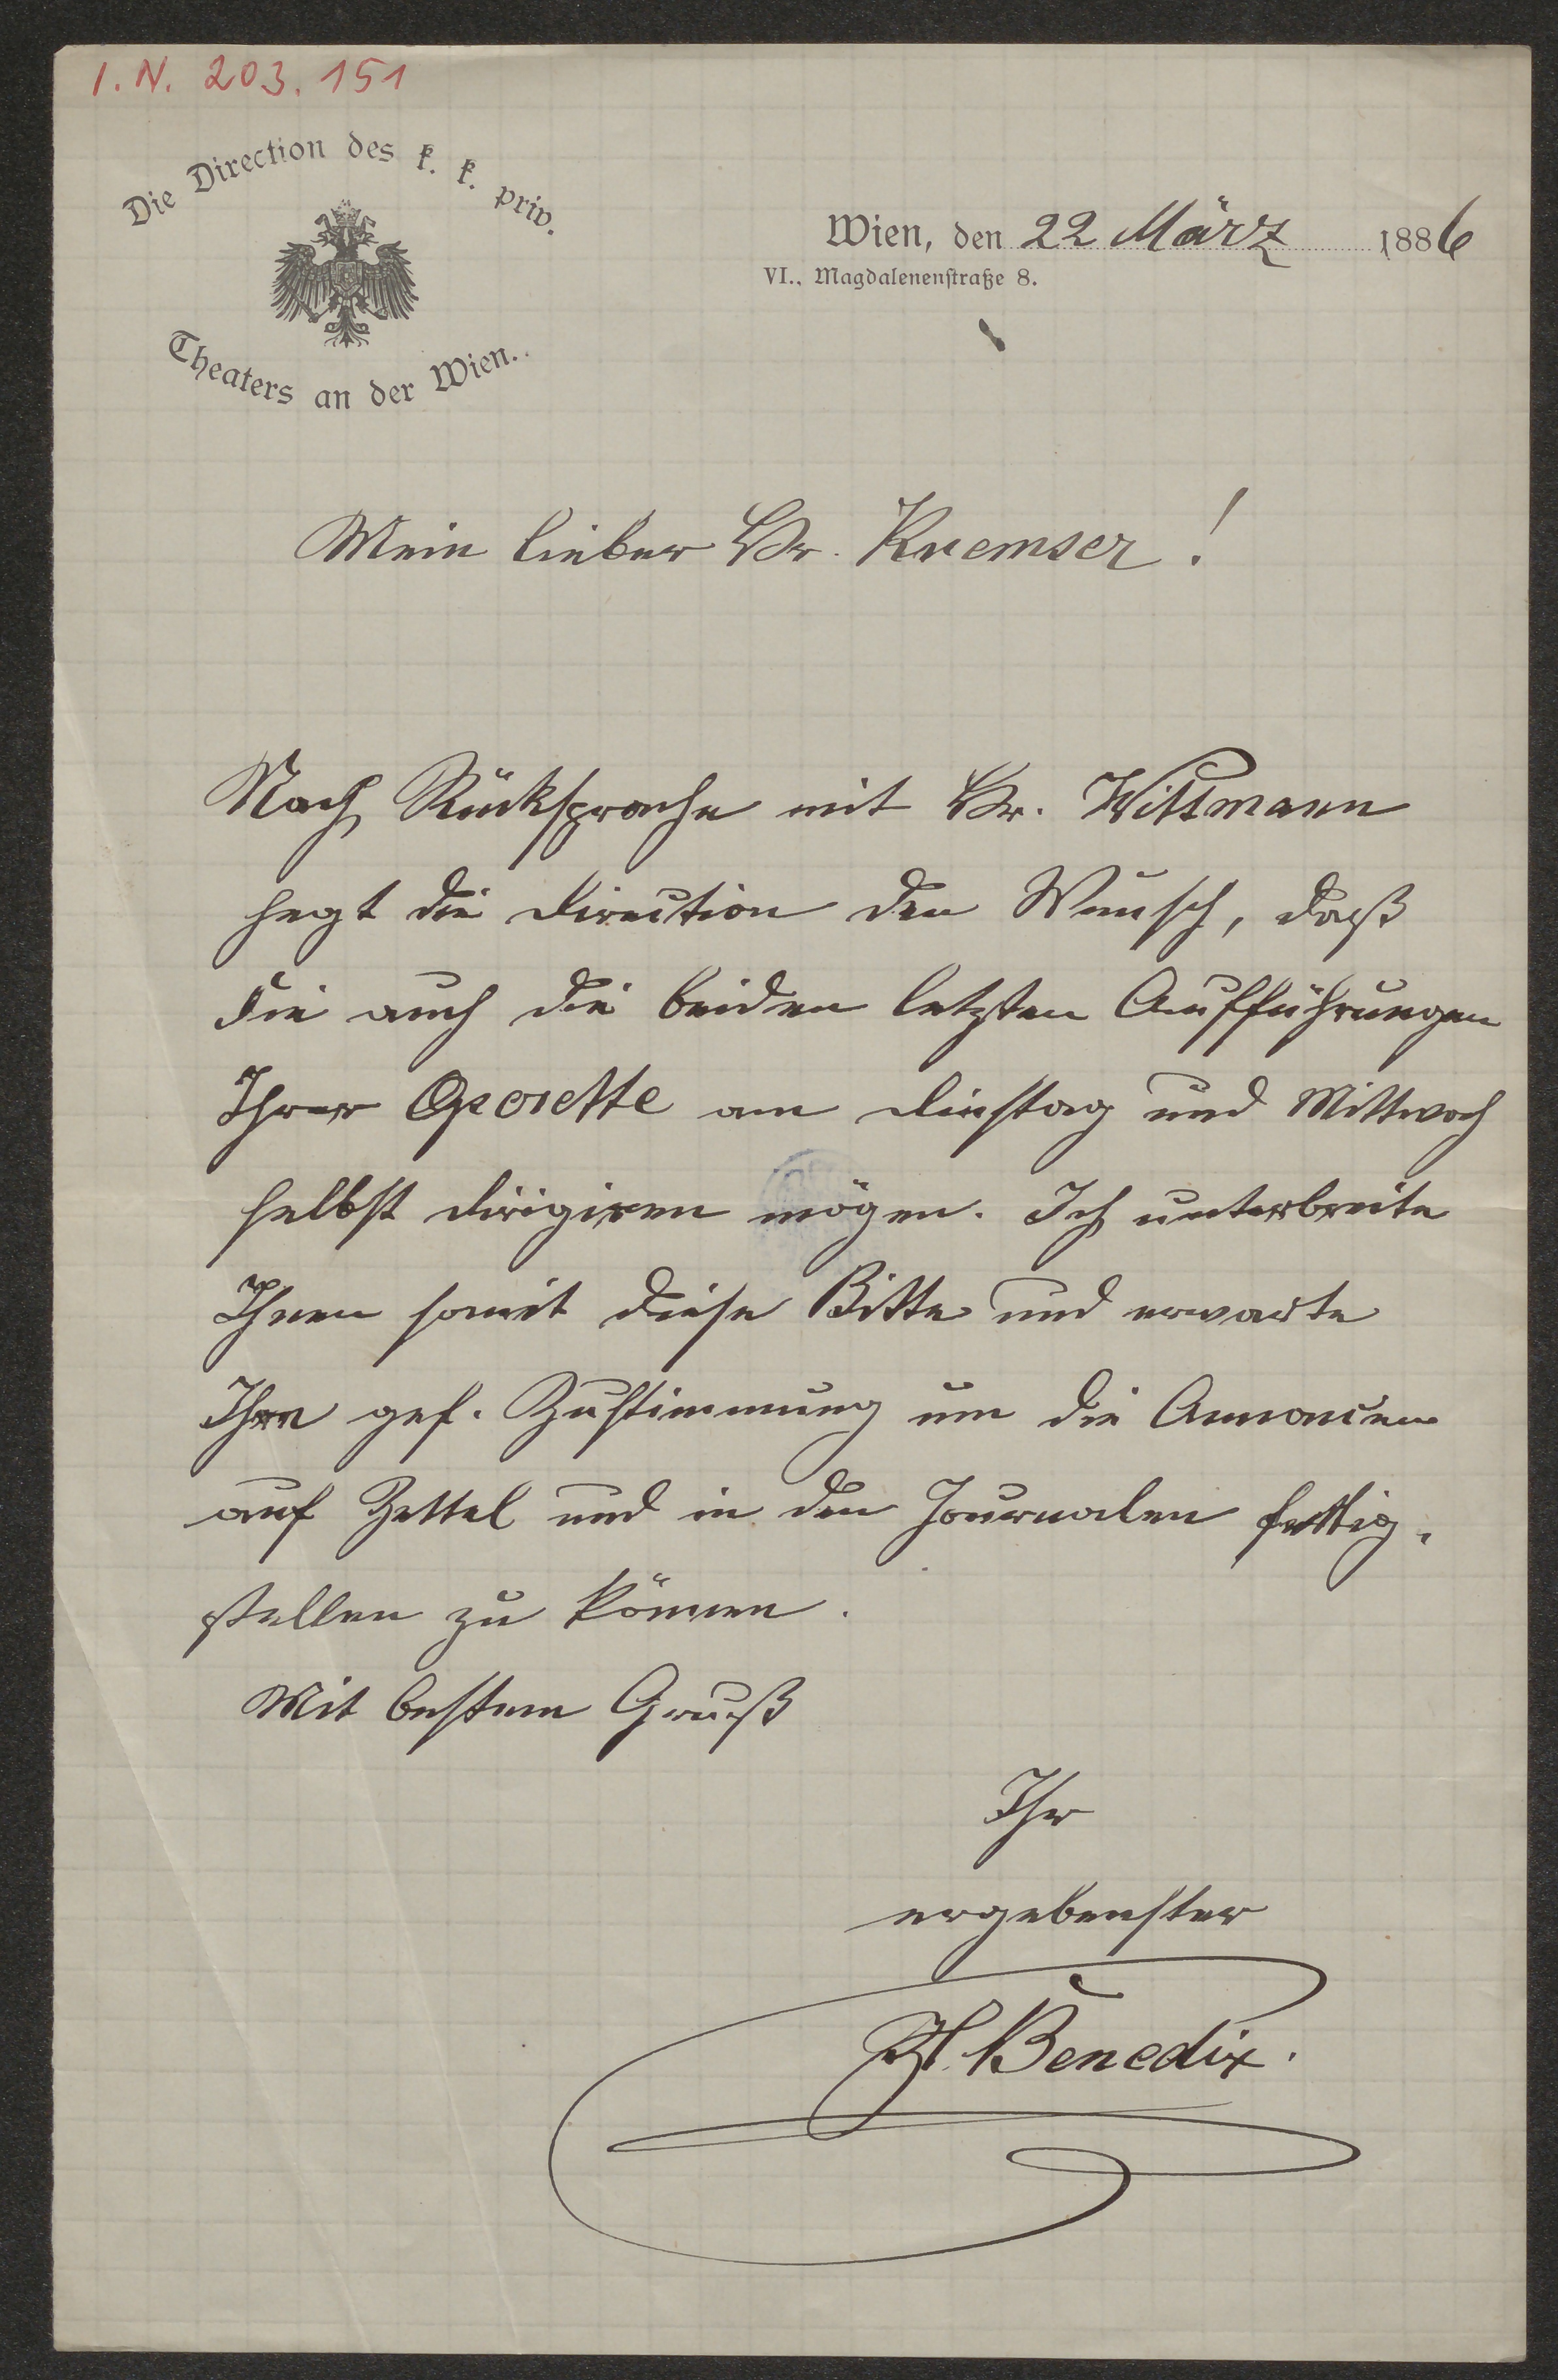 I.N. 203.151
Die Direction des k. k. priv.
Theaters an der Wien.
Wien, den 22 März 1886
VI., Magdalenenstraße 8.
Mein lieber Hr. Kremser!
Nach Rücksprache mit Hr. Wittmann
hegt die Direction den Wunsch, daß
Sie auch die beiden letzten Aufführungen
Ihrer Operette am Dinstag und Mittwoch
selbst dirigiren mögen. Ich unterbreite
Ihnen somit diese Bitte und erwarte
Ihre gef. Zustimmung um die Annoncen
auf Zettel und in den Journalen fertig-
stellen zu können.
Mit bestem Gruß
Ihr
ergebenster
H. Benedix.